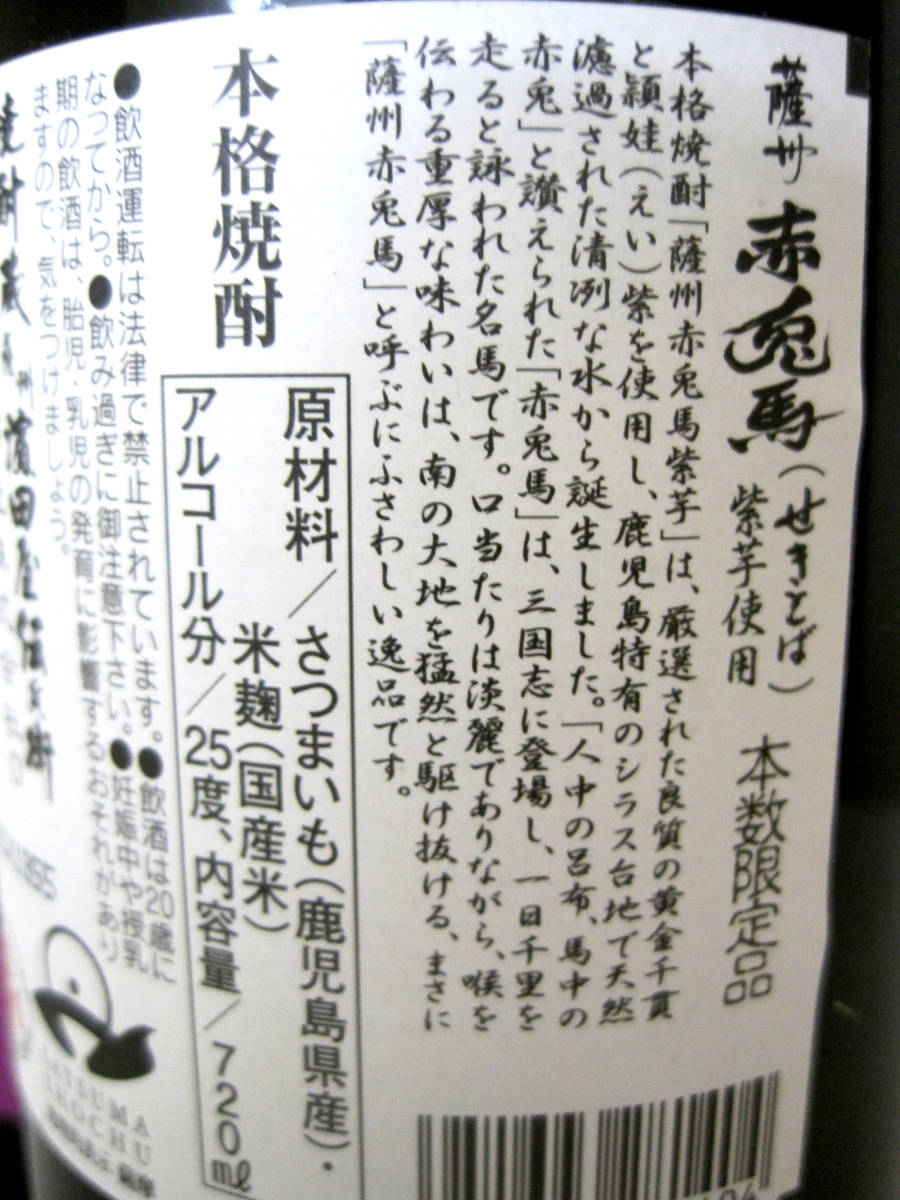 薩州 赤兎馬(せきとば)
紫芋使用
本数限定品
本格焼酎「薩州赤兎馬紫芋」は、厳選された良質の黄金千貫
と頴娃(えい)紫を使用し、鹿児島特有のシラス台地で天然
濾過された清冽な水から誕生しました。「人中の呂布、馬中の
赤兎」と讃えられた「赤兎馬」は、三国志に登場し、一日千里を
走ると詠われた名馬です。口当たりは淡麗でありながら、喉を
伝わる重厚な味わいは、南の大地を猛然と駆け抜ける、まさに
「薩州赤兎馬」と呼ぶにふさわしい逸品です。
本格焼酎
原材料/さつまいも(鹿児島県産)・
米麹(国産米)
アルコール分/25度、内容量/720ml
●飲酒運転は法律で禁止されています。●飲酒は20歳に
なってから。●飲み過ぎに御注意下さい。●妊娠中や授乳
期の飲酒は、胎児・乳児の発育に影響するおそれがあり
ますので、気をつけましょう。
濵田屋伝兵衛
SATSUMA
SHOCHU